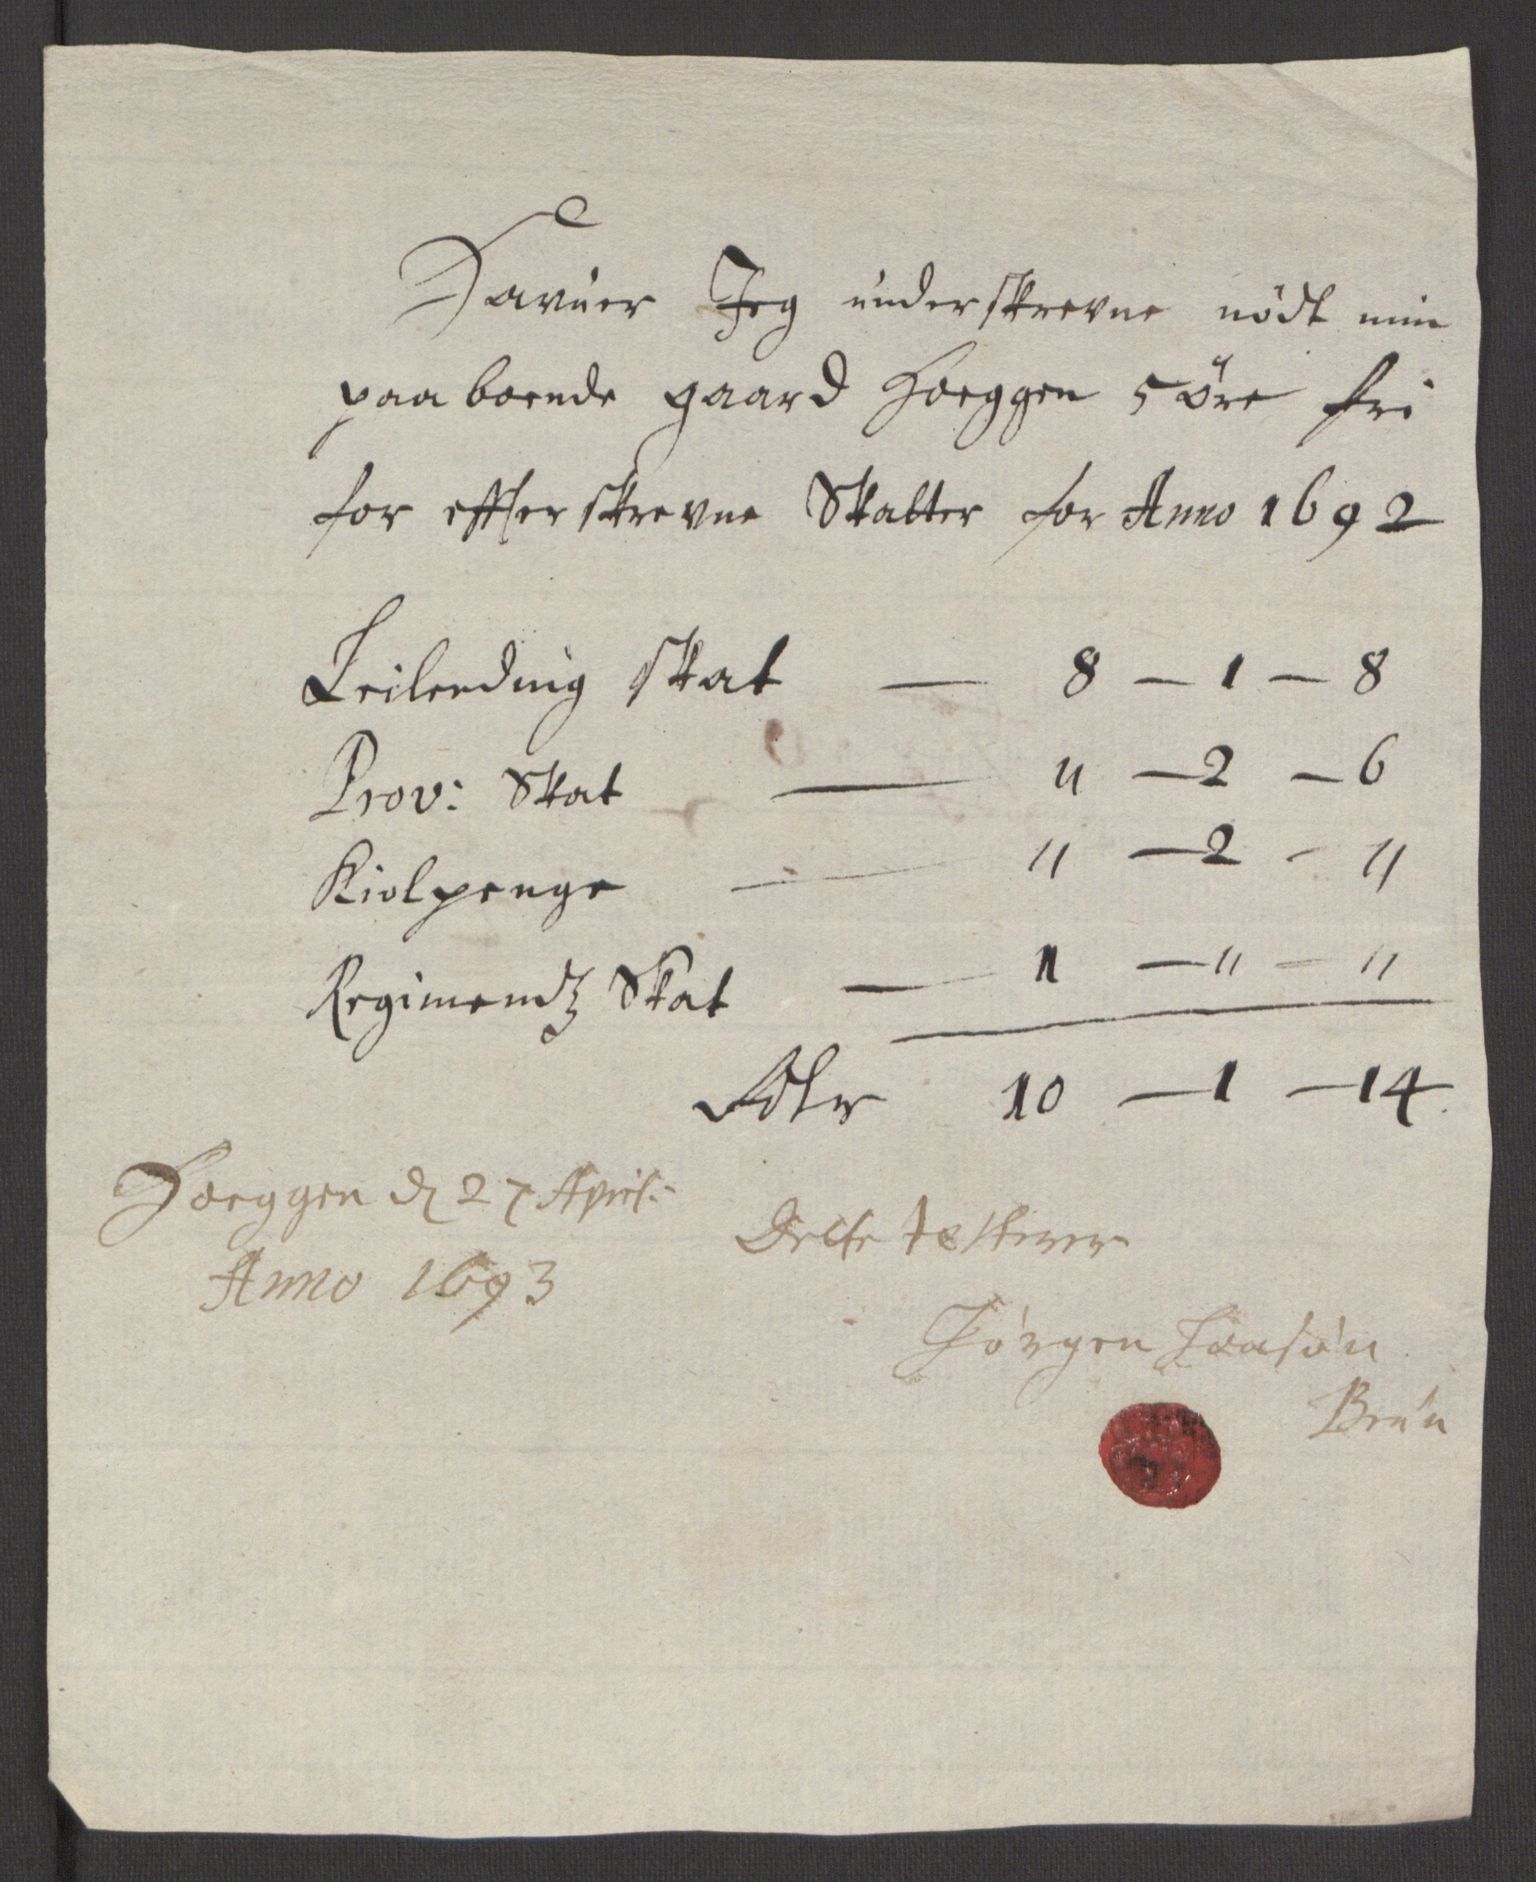 Havuer Jeg underskrevne nödt min
paaboende gaard Horggen 5 öre fri
for effterskrevne Skatter for Anno 1692
Leilending skat — 8 — 1 — 8
Prov: Skat — " — 2 — 6
Kiolpenge — " — 2 — "
Regimendtz Skat — 1 — " — "
10 — 1 — 14
Horggen d 27 April:
Anno 1693
Dette testerer
Jörgen
Brun